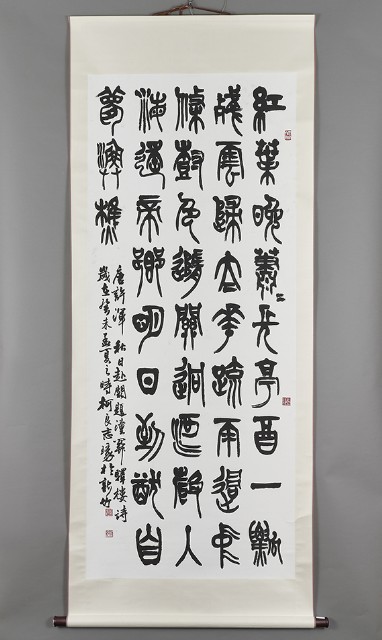 紅葉晚蕭〻長亭酉一瓢
殘雲歸太華疏雨過中
條樹色隨關迥河聲入
海遙帝鄉明日到猶自
夢漁樵
唐許渾秋日赴闕題潼關驛樓詩
歲在癸未孟夏之時柯良志於新竹